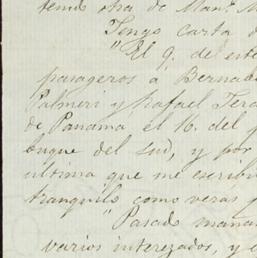 tenido otra de Man.l M
Tengo carta d
"El 9. del este
pasageros a Bernad
Palmeri y Rafael Tera
de Panama el 16. del p
buque del sud, y por
última que me escribi
tranquilo como verás p
"Pasado mañan
varios interezados, y e